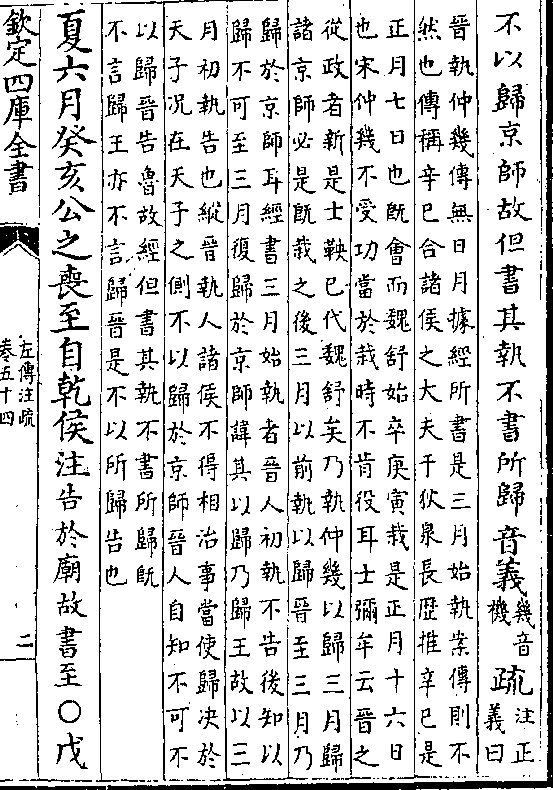 不以歸京師故但書其執不書所歸音義幾音機疏注正義曰
晉執仲幾傳無日月據經所書是三月始執案傳則不
然也傳稱辛巳合諸侯之大夫于狄泉長歷推辛巳是
正月七日也旣會而魏舒始卒庚寅栽是正月十六日
也宋仲幾不受功當於栽時不肯役耳士彌牟云晉之
從政者新是士鞅已代魏舒矣乃執仲幾以歸三月歸
諸京師必是旣栽之後三月以前執以歸晉至三月乃
歸於京師耳經書三月始執者晉人初執不告後知以
歸不可至三月復歸於京師諱其以歸乃歸王故以三
月初執告也縱晉執人諸侯不得相治事當使歸決於
天子況在天子之側不以歸於京師晉人自知不可不
以歸晉告魯故經但書其執不書所歸旣
不言歸王亦不言歸晉是不以所歸告也
夏六月癸亥公之喪至自乾侯注告於廟故書至○戊
欽定四庫全書
左傳注疏
卷五十四
二